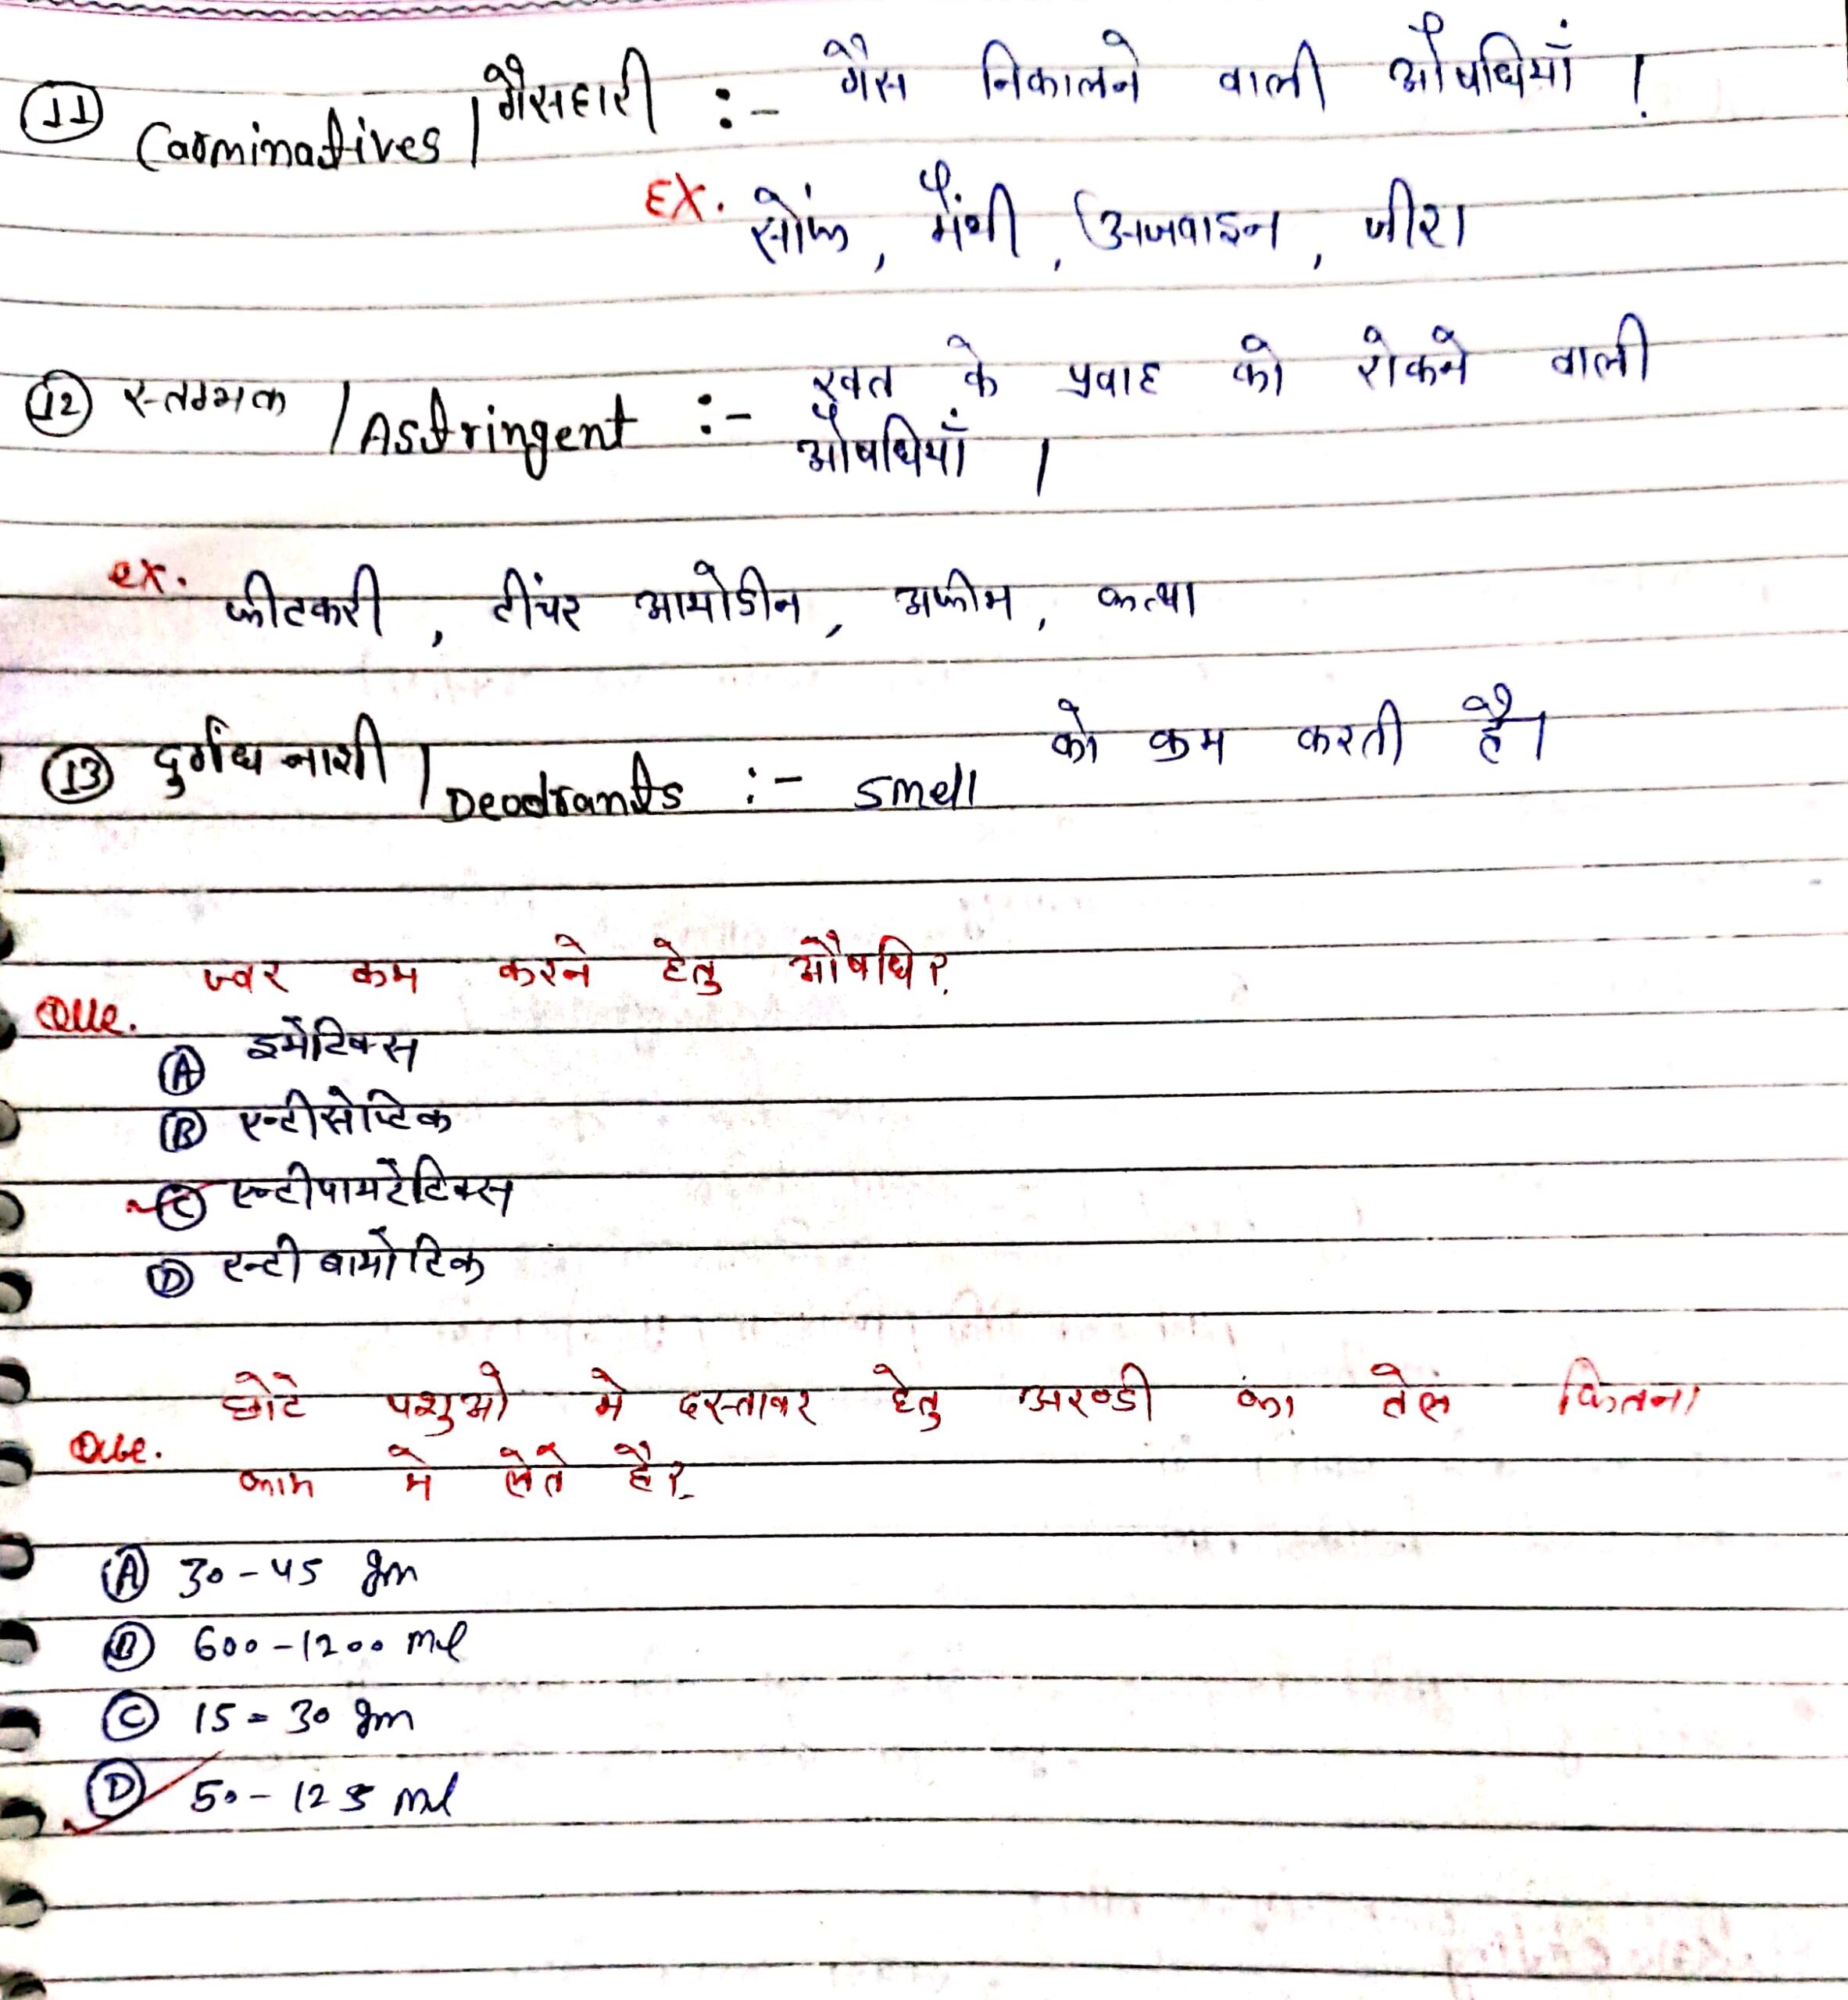 11 Carminatives / गैसहारी :- गैस निकालने वाली औषधियाँ !
EX. सोंफ, मैंथी, अजवाइन, जीरा
12 स्तम्भक / Astringent :- रक्त के प्रवाह को रोकने वाली
औषधियाँ ।
ex. फीटकरी, टींचर आयोडीन, अफीम, कत्था
13 दुर्गंध नाशी / Deodrants :- smell को कम करती है।
Que. ज्वर कम करने हेतु औषधि?
A इमेटिक्स
B एन्टीसेप्टिक
C एन्टीपायरेटिक्स
D एन्टी बायोटिक
Que. छोटे पशुओ मे दस्तावर हेतु अरण्डी का तेल कितना
काम मे लेते है?
A 30-45 gm
B 600-1200 ml
C 15-30 gm
D 50-125 ml